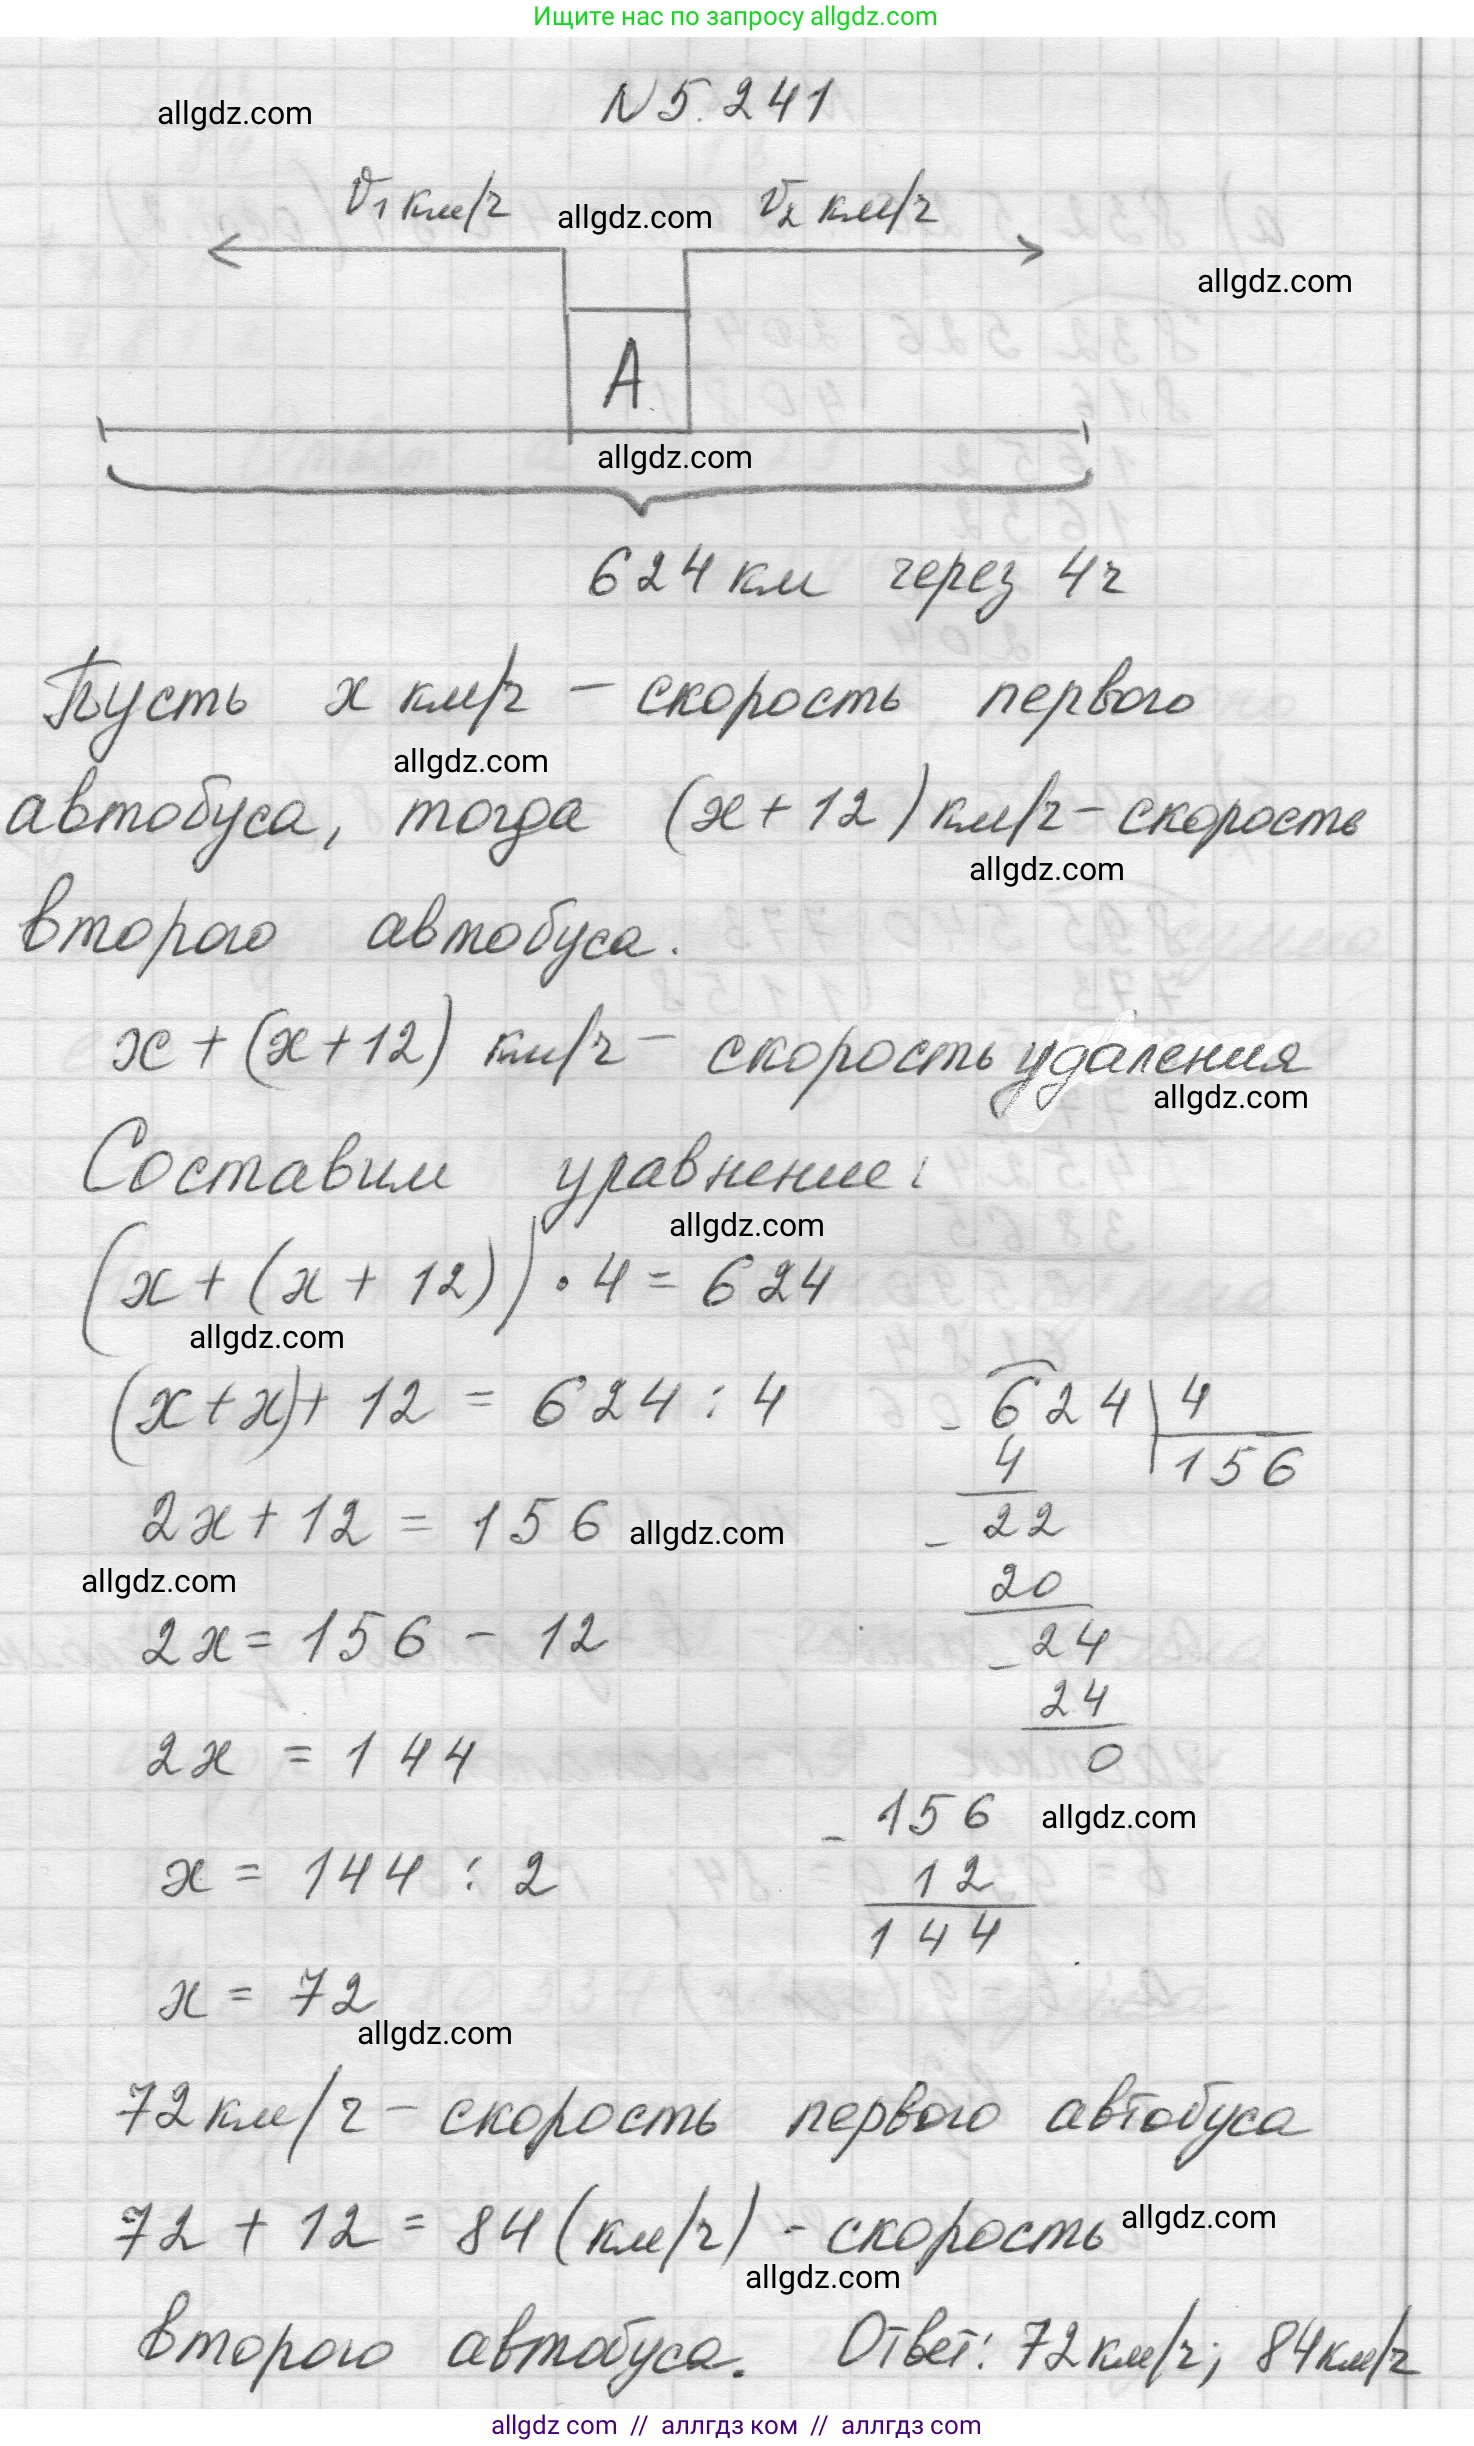 Ищите нас по запросу allgdz.com
allgdz.com
N 5.241
v₁ км/ч
allgdz.com
v₂ км/ч
allgdz.com
A
allgdz.com
624 км через 4ч
Пусть x км/ч – скорость первого
allgdz.com
автобуса, тогда (x + 12) км/ч – скорость
allgdz.com
второго автобуса.
x + (x + 12) км/ч – скорость удаления
allgdz.com
Составим уравнение:
allgdz.com
(x + (x + 12)) · 4 = 624
allgdz.com
(x + x) + 12 = 624 : 4
2x + 12 = 156
allgdz.com
allgdz.com
2x = 156 – 12
2x = 144
x = 144 : 2
x = 72
allgdz.com
- 624 | 4
4 156
- 22
20
- 24
24
0
- 156
allgdz.com
12
144
72 км/ч – скорость первого автобуса
72 + 12 = 84 (км/ч) – скорость
allgdz.com
allgdz.com
второго автобуса. Ответ: 72 км/ч; 84 км/ч
allgdz com // аллгдз ком // аллгдз com